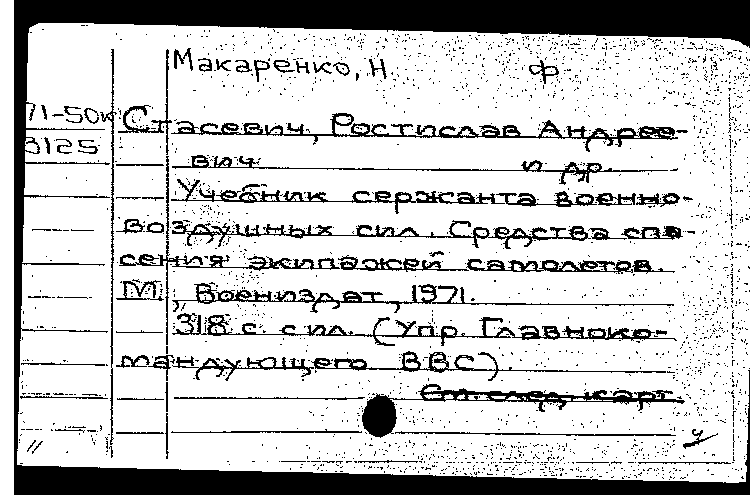 Макаренко, Н ф
71-50к Стасевич, Ростислав Андрее-
3125
вич и др.
Учебник сержанта военно-
воздушных сил. Средства спа-
сения экипажей самолетов.
М., Воениздат, 1971.
318 с. с ил. (Упр. Главноко-
мандующего ВВС).
См. след. карт.